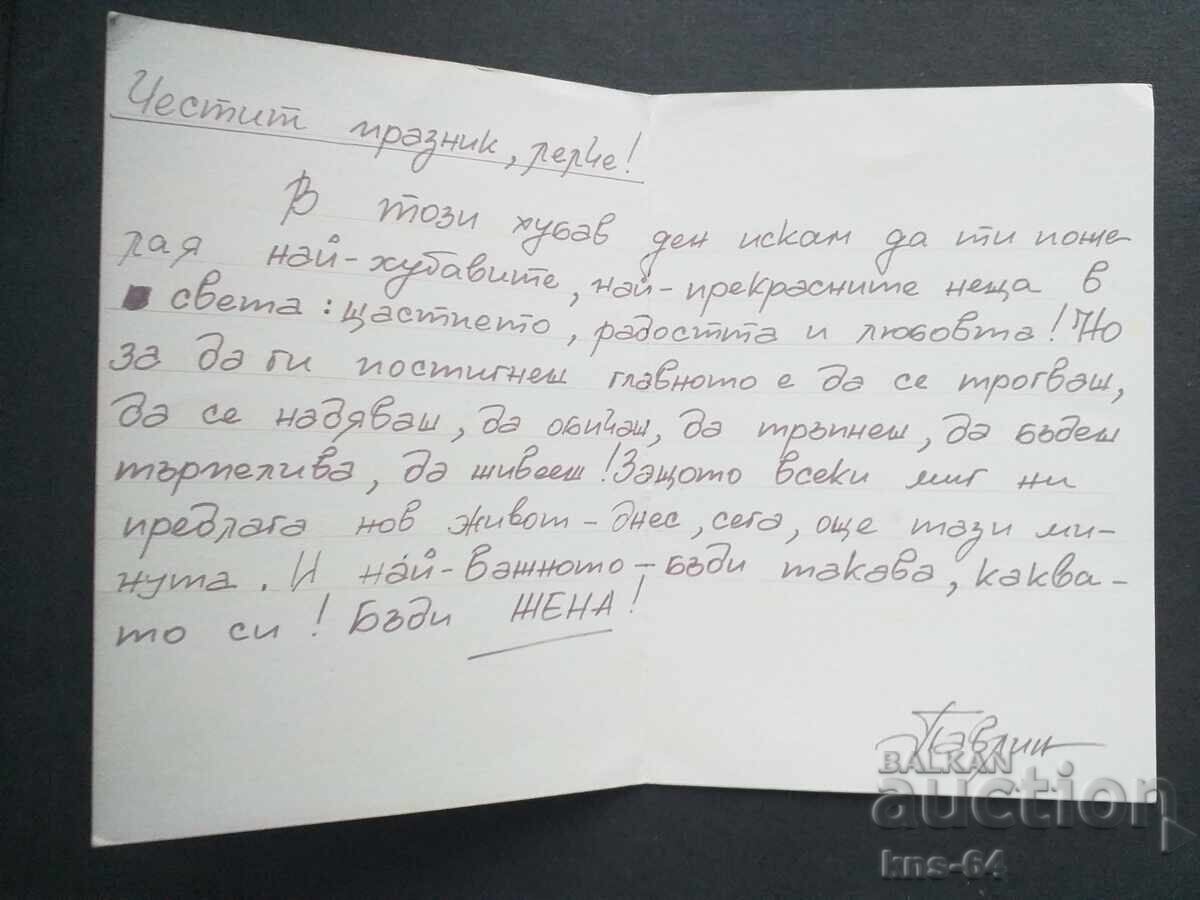 Честит празник, лелче!
В този хубав ден искам да ти поже-
лая най-хубавите, най-прекрасните неща в
света: щастието, радостта и любовта! Но
за да ги постигнеш главното е да се трогваш,
да се надяваш, да обичаш, да тръпнеш, да бъдеш
търпелива, да живееш! Защото всеки миг ни
предлага нов живот - днес, сега, още тази ми-
нута. И най-важното - бъди такава, каква-
то си! Бъди ЖЕНА!
Павлин
BALKAN
auction
kns-64